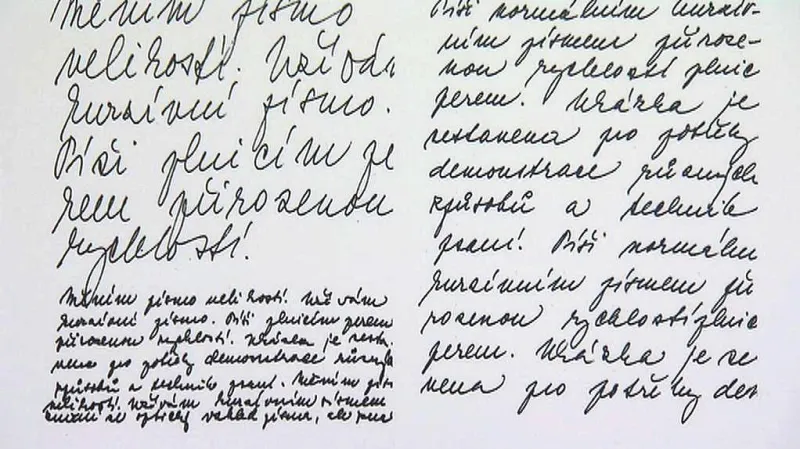 Měním písmo
velikostí. Užívá
kurzívní písmo.
Píši plnicím pe
rem přirozenou
rychlostí.
Měním písmo velikostí. Užívám
kurzívní písmo. Píši plnicím perem
přirozenou rychlostí. Ukázka je sesta
vena pro potřeby demonstrace různých
způsobů a technik psaní. Měním pís
velikostí. Užívám kurzívním písmem
se opticky vzhled písma, ale
Píši normálním kurzív-
ním písmem přiroze-
nou rychlostí plnic
perem. Ukázka je
sestavena pro potřeby
demonstrace různých
způsobů a technik
psaní. Píši normáln
kurzívním písmem při
rozenou rychlostí plnic
perem. Ukázka je se
vena pro potřeby dem